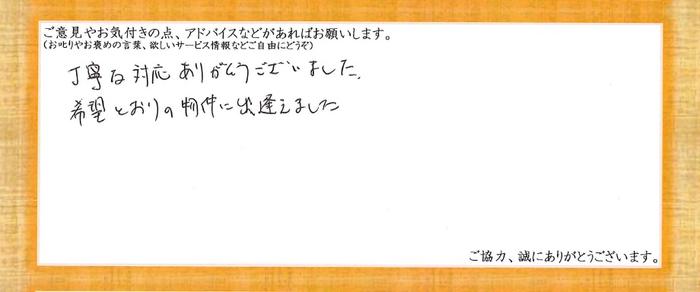 ご意見やお気付きの点、アドバイスなどがあればお願いします。
(お叱りやお褒めの言葉、欲しいサービス情報などご自由にどうぞ)
丁寧な対応ありがとうございました.
希望とおりの物件に出逢えました
ご協力、誠にありがとうございます。